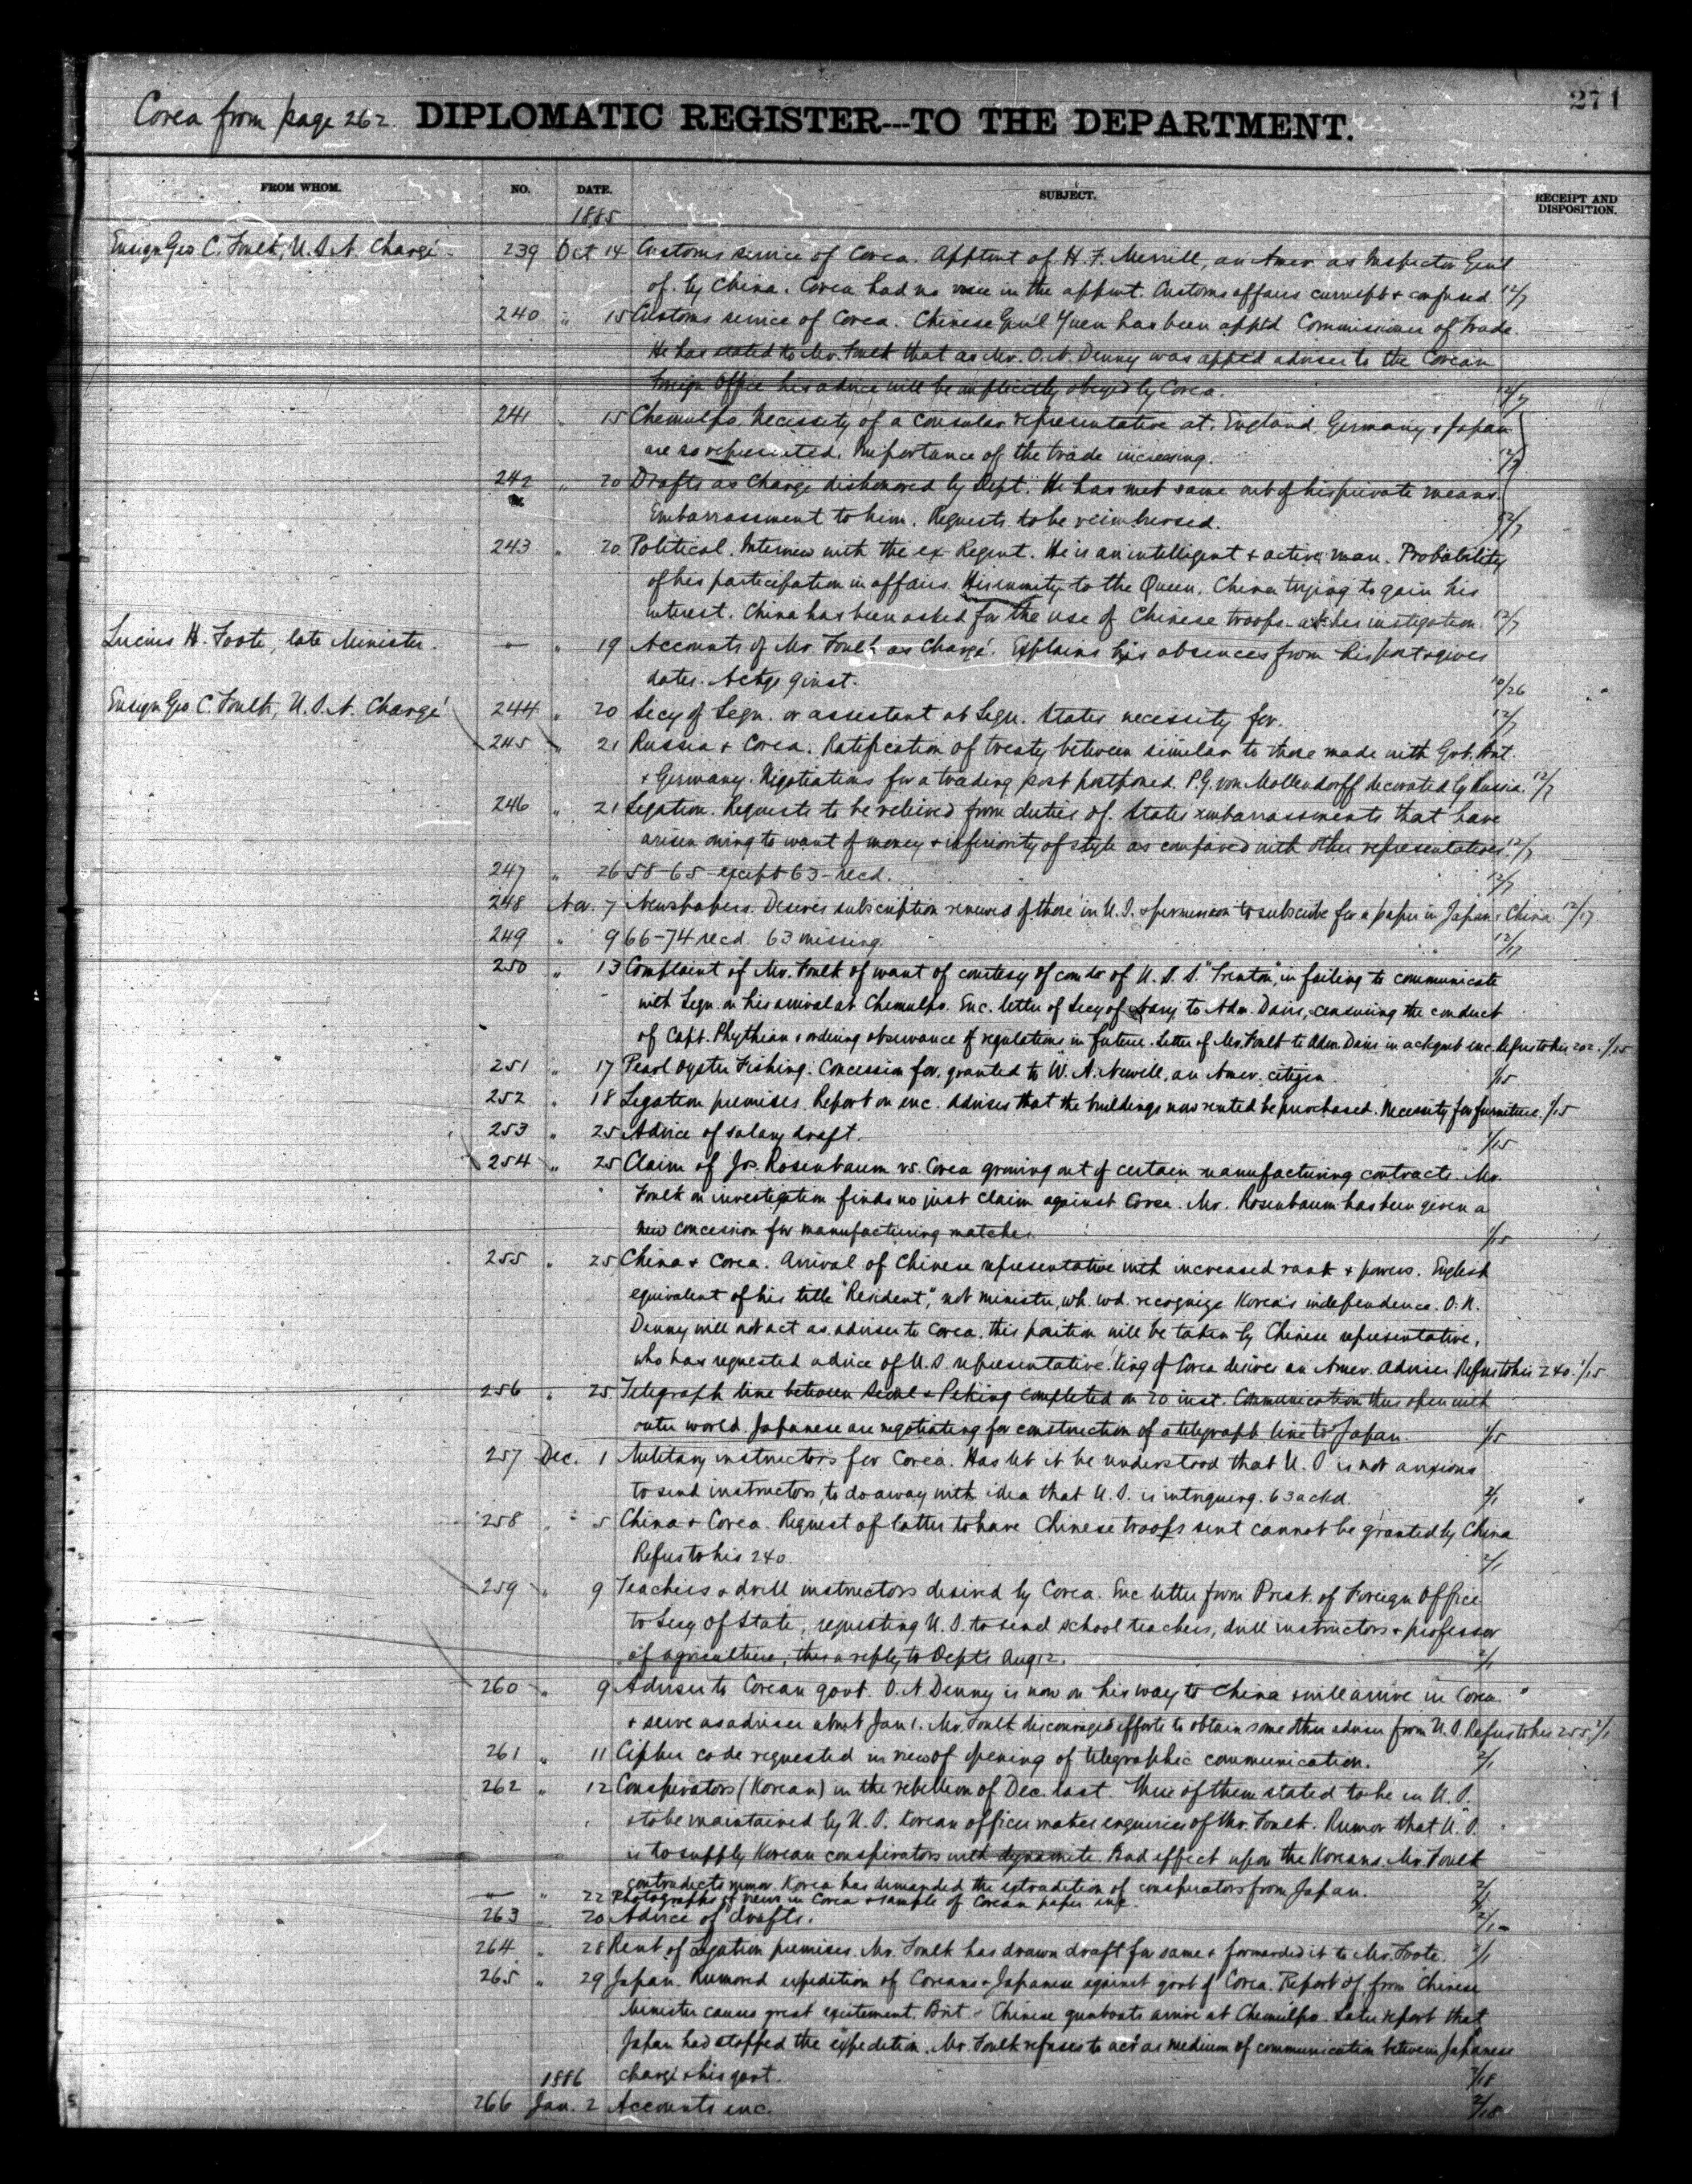 271
Corea from page 262. DIPLOMATIC REGISTER---TO THE DEPARTMENT.
FROM WHOM. NO. DATE. SUBJECT. RECEIPT AND DISPOSITION.
1885
Ensign Geo C. Foulk, U.S.N. Chargé 239 Oct 14 Customs service of Corea. Apptmt of H. F. Merrill, an Amer. as Inspector Genl
of. by China. Corea had no voice in the appmt. Customs affairs corrupt & confused. 12/7
240 " 15 Customs service of Corea. Chinese Gen'l Yuen has been app'td Commissioner of trade.
He has stated to Mr. Foulk that as Mr. O. N. Denny was apptd adviser to the Corean
Foreign Office his advice will be implicitly obeyed by Corea. 12/7
241 " 15 Chemulpo. Necessity of a consular representative at. England, Germany & Japan
are so represented. Importance of the trade increasing. 12/7
242 " 20 Drafts as Chargé dishonored by Dept. He has met same out of his private means.
Embarrassment to him. Requests to be reimbursed. 12/7
243 " 20 Political. Interview with the ex-Regent. He is an intelligent & active man. Probability
of his participation in affairs. His enmity to the Queen. China trying to gain his
interest. China has been asked for the use of Chinese troops at her instigation. 12/7
Lucius H. Foote, late Minister. — " 19 Accounts of Mr. Foulk as Chargé. Explains his absences from his post & gives
dates. 10/26
Ensign Geo C. Foulk, U.S.N. Chargé 244 " 20 Secy of Legn. or assistant at Legn. States necessity for. 12/7
245 " 21 Russia & Corea. Ratification of treaty between similar to those made with Grt. Brit.
& Germany. Negotiations for a trading post postponed. P. G. von Mollendorff decorated by Russia. 12/7
246 " 21 Legation. Requests to be relieved from duties of. States embarrassments that have
arisen owing to want of money & inferiority of style as compared with other representatives. 12/7
247 " 26 58-65 except 63 recd. 12/7
248 Nov. 7 Newspapers. Desires subscription renewed of those in U.S. & permission to subscribe for a paper in Japan & China. 12/17
249 " 9 66-74 recd. 63 missing. 12/17
250 " 13 Complaint of Mr. Foulk of want of courtesy of comdr of U.S.S. "Trenton," in failing to communicate
with Legn. on his arrival at Chemulpo. Enc. letter of Secy of Navy to Adm. Davis, censuring the conduct
of Capt. Phythian & ordering observance of regulations in future. Letter of Mr. Foulk to Adm. Davis in ackgmt enc. Refers to his 202. 1/15
251 " 17 Pearl Oyster Fishing. Concession for, granted to W. A. Newell, an Amer. citizen. 1/15
252 " 18 Legation premises. Report on enc. Advises that the buildings now rented be purchased. Necessity for furniture. 1/15
253 " 25 Advice of salary draft. 1/15
254 " 25 Claim of Jos. Rosenbaum vs. Corea growing out of certain manufacturing contracts. Mr.
Foulk on investigation finds no just claim against Corea. Mr. Rosenbaum has been given a
new concession for manufacturing matches. 1/15
255 " 25 China & Corea. Arrival of Chinese representative with increased rank & powers. English
equivalent of his title "Resident," not minister, wh. wd. recognize Korea's independence. O. N.
Denny will not act as adviser to Corea, this position will be taken by Chinese representative,
who has requested advice of U.S. representative. King of Corea desires an Amer. adviser. Refers to his 240. 1/15
256 " 25 Telegraph line between Seoul & Peking completed on 20 inst. Communication thus open with
outer world. Japanese are negotiating for construction of a telegraph line to Japan. 1/15
257 Dec. 1 Military instructors for Corea. Has let it be understood that U.S. is not anxious
to send instructors, to do away with idea that U.S. is intriguing. 63 ackd. 2/1
258 " 5 China & Corea. Request of latter to have Chinese troops sent cannot be granted by China
Refers to his 240 2/1
259 " 9 Teachers & drill instructors desired by Corea. Enc. letter from Prest. of Foreign Office
to Secy of State, requesting U.S. to send school teachers, drill instructors & professor
of agriculture; this a reply to Dept's Aug 12. 2/1
260 " 9 Adviser to Corean govt. O. N. Denny is now on his way to China & will arrive in Corea
& serve as adviser about Jan 1. Mr. Foulk discouraged efforts to obtain some other adviser from U.S. Refers to his 255. 2/1
261 " 11 Cipher code requested in view of opening of telegraphic communication. 2/1
262 " 12 Conspirators (Korean) in the rebellion of Dec. last. Three of them stated to be in U.S.
& to be maintained by U.S. Korean officer makes enquiries of Mr. Foulk. Rumor that U.S.
is to supply Korean conspirators with dynamite. Bad effect upon the Koreans. Mr. Foulk
contradicts rumor. Korea has demanded the extradition of conspirators from Japan. 2/1
— " 22 Photographs of views in Corea & sample of Corean paper enc. 2/1
263 " 20 Advice of drafts. 2/1
264 " 28 Rent of Legation premises. Mr. Foulk has drawn draft for same & forwarded it to Mr. Foote. 2/1
265 " 29 Japan. Rumored expedition of Coreans & Japanese against govt of Corea. Report of from Chinese
Minister causes great excitement. Brit & Chinese gunboats arrive at Chemulpo. Later report that
Japan had stopped the expedition. Mr. Foulk refuses to act as medium of communication between Japanese
chargé & his govt. 2/18
1886
266 Jan. 2 Accounts enc. 2/18